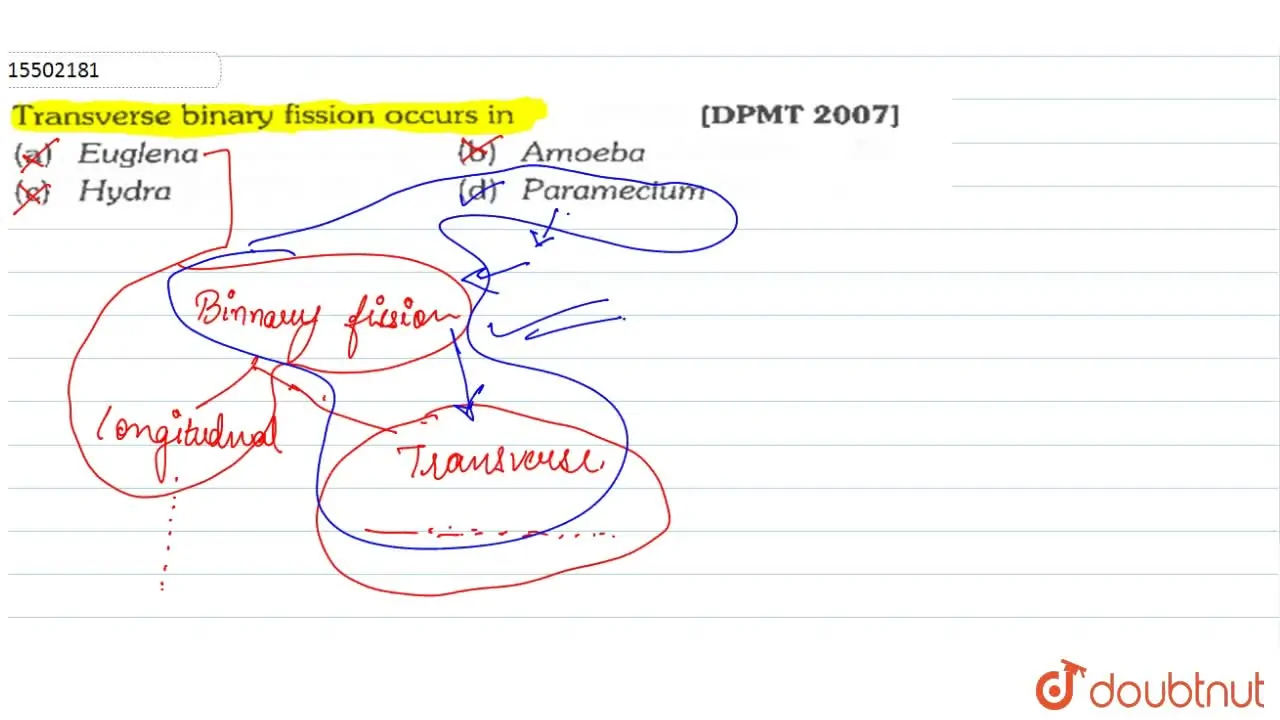 15502181
Transverse binary fission occurs in [DPMT 2007]
(a) Euglena (b) Amoeba
(c) Hydra (d) Paramecium
Binnary fission
Longitudual
Transverse.
doubtnut